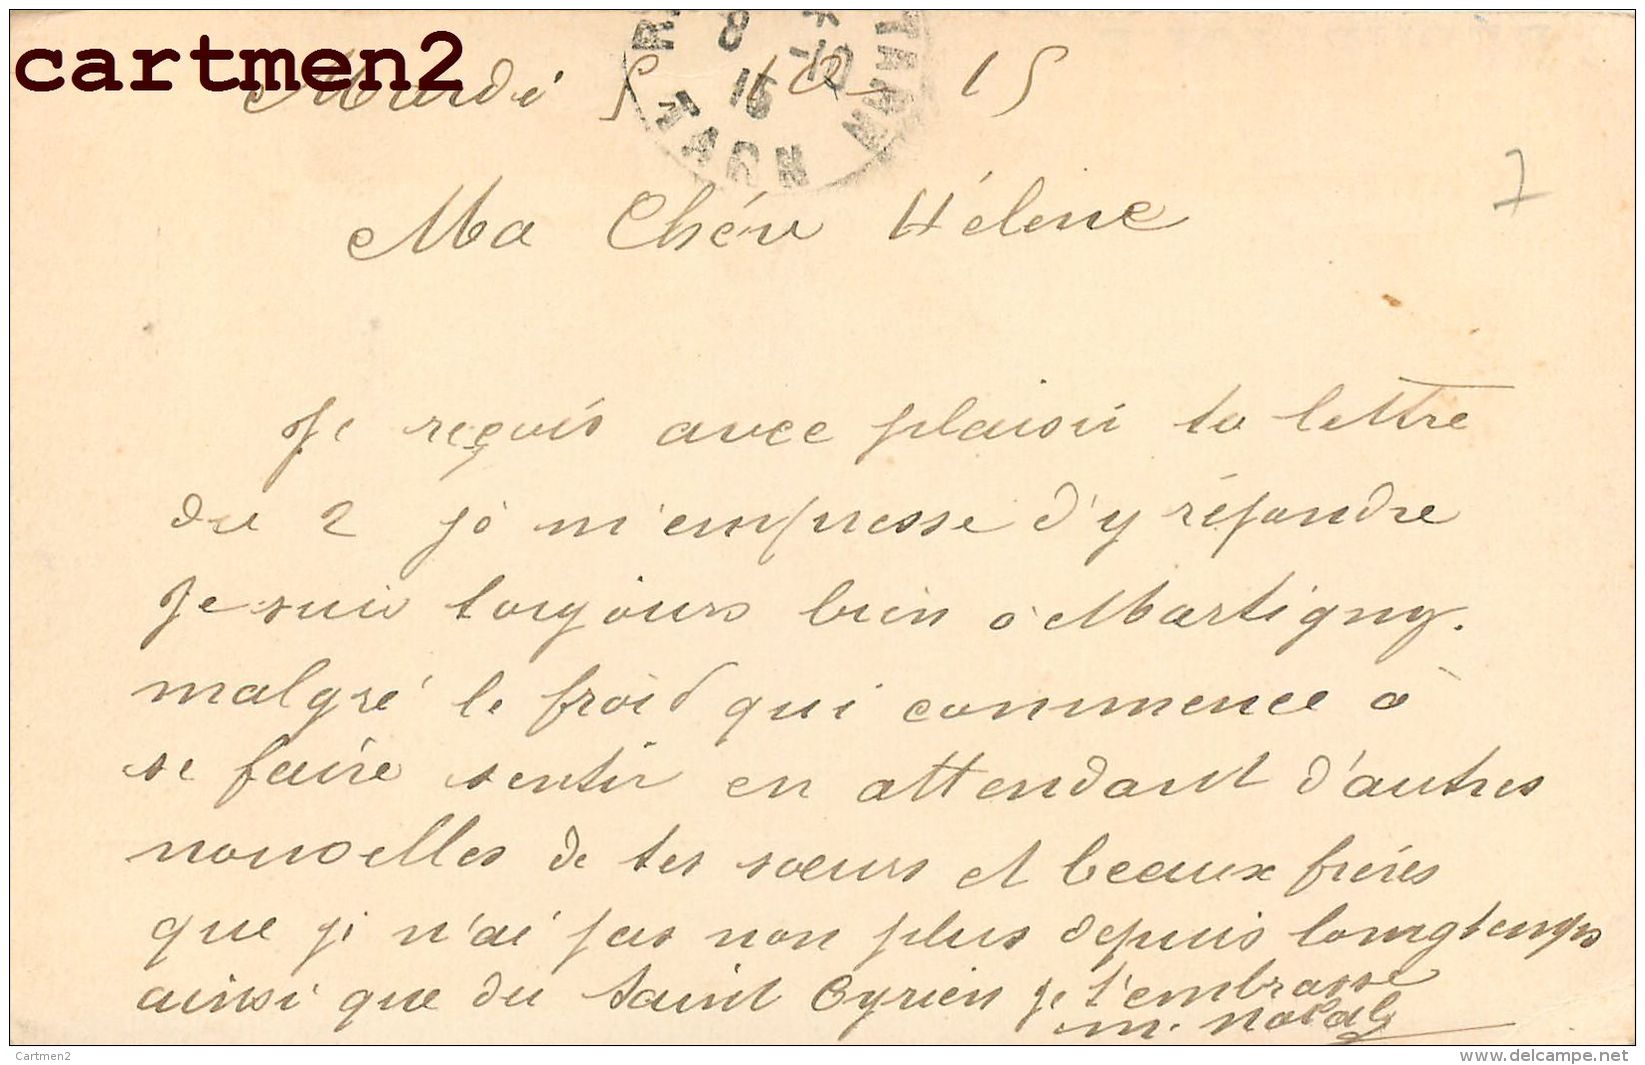 cartmen2
Mardi 5 10 15
8 * 10
15
TARN TARN
7
Ma Chére Hélène
Je reçois avec plaisir ta lettre
du 2 je m'empresse d'y répondre
Je suis toujours bien à Martigny.
malgré le froid qui commence à
se faire sentir en attendant d'autres
nouvelles de tes sœurs et beaux frères
que je n'ai pas non plus depuis longtemps
ainsi que du Saint Cyrien je t'embrasse
m.
Cartmen2
www.delcampe.net